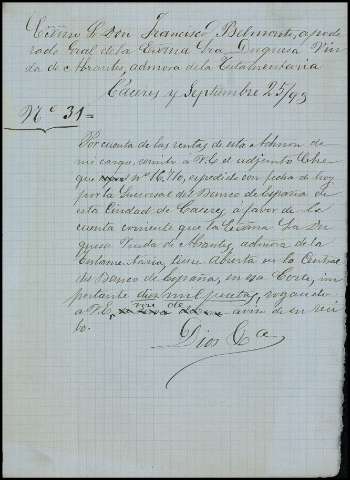 Exmo Sr Don Francisco Belmonte, apode
rado Gral de la Exma Sra Duquesa Viu
da de Abrantes, admora de la Testamentaria
Cáceres y Septiembre 25/95
Nº 31=
Por cuenta de las rentas de esta Admon de
mi cargo, remito a V.E. el adjunto Che
que nº 16.710, expedido con fecha de hoy
por la Sucursal del Banco de España de
esta Ciudad de Caceres, á favor de la
cuenta corriente que la Exma Sra Du
quesa Viuda de Abrantes, admora de la
Testamentaria, tiene abierta en la Central
del Banco de España, en esa Corte, im
portante diez mil pesetas, rogando
a V.E. aviso de su reci
bo.
Dios Ga